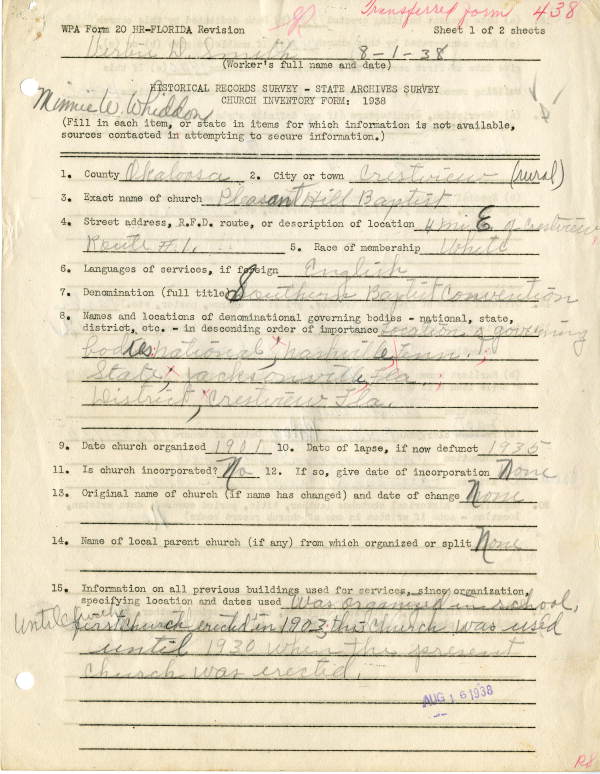 Transferred form 438
WPA Form 20 HR-FLORIDA Revision Sheet 1 of 2 sheets
D. Smith 8-1-38
(Worker's full name and date)
HISTORICAL RECORDS SURVEY - STATE ARCHIVES SURVEY
Minnie W. Whiddon
CHURCH INVENTORY FORM: 1938
(Fill in each item, or state in items for which information is not available,
sources contacted in attempting to secure information.)
1. County Okaloosa 2. City or town Crestview (rural)
3. Exact name of church Pleasant Hill Baptist
4. Street address, R.F.D. route, or description of location 4 mi. E of Crestview
Route #1. 5. Race of membership White
6. Languages of services, if foreign English
7. Denomination (full title) Southern Baptist Convention
8. Names and locations of denominational governing bodies - national, state,
district, etc. - in descending order of importance Location of governing
bodies national, Nashville, Tenn.;
State, Jacksonville, Fla.
District, Crestview Fla.
9. Date church organized 1901 10. Date of lapse, if now defunct 1935
11. Is church incorporated? No 12. If so, give date of incorporation None
13. Original name of church (if name has changed) and date of change None
14. Name of local parent church (if any) from which organized or split None
15. Information on all previous buildings used for services, since organization,
specifying location and dates used Was organized in school,
Until church
first church erected in 1903, this church was used
until 1930 when the present
church was erected.
AUG 16 1938